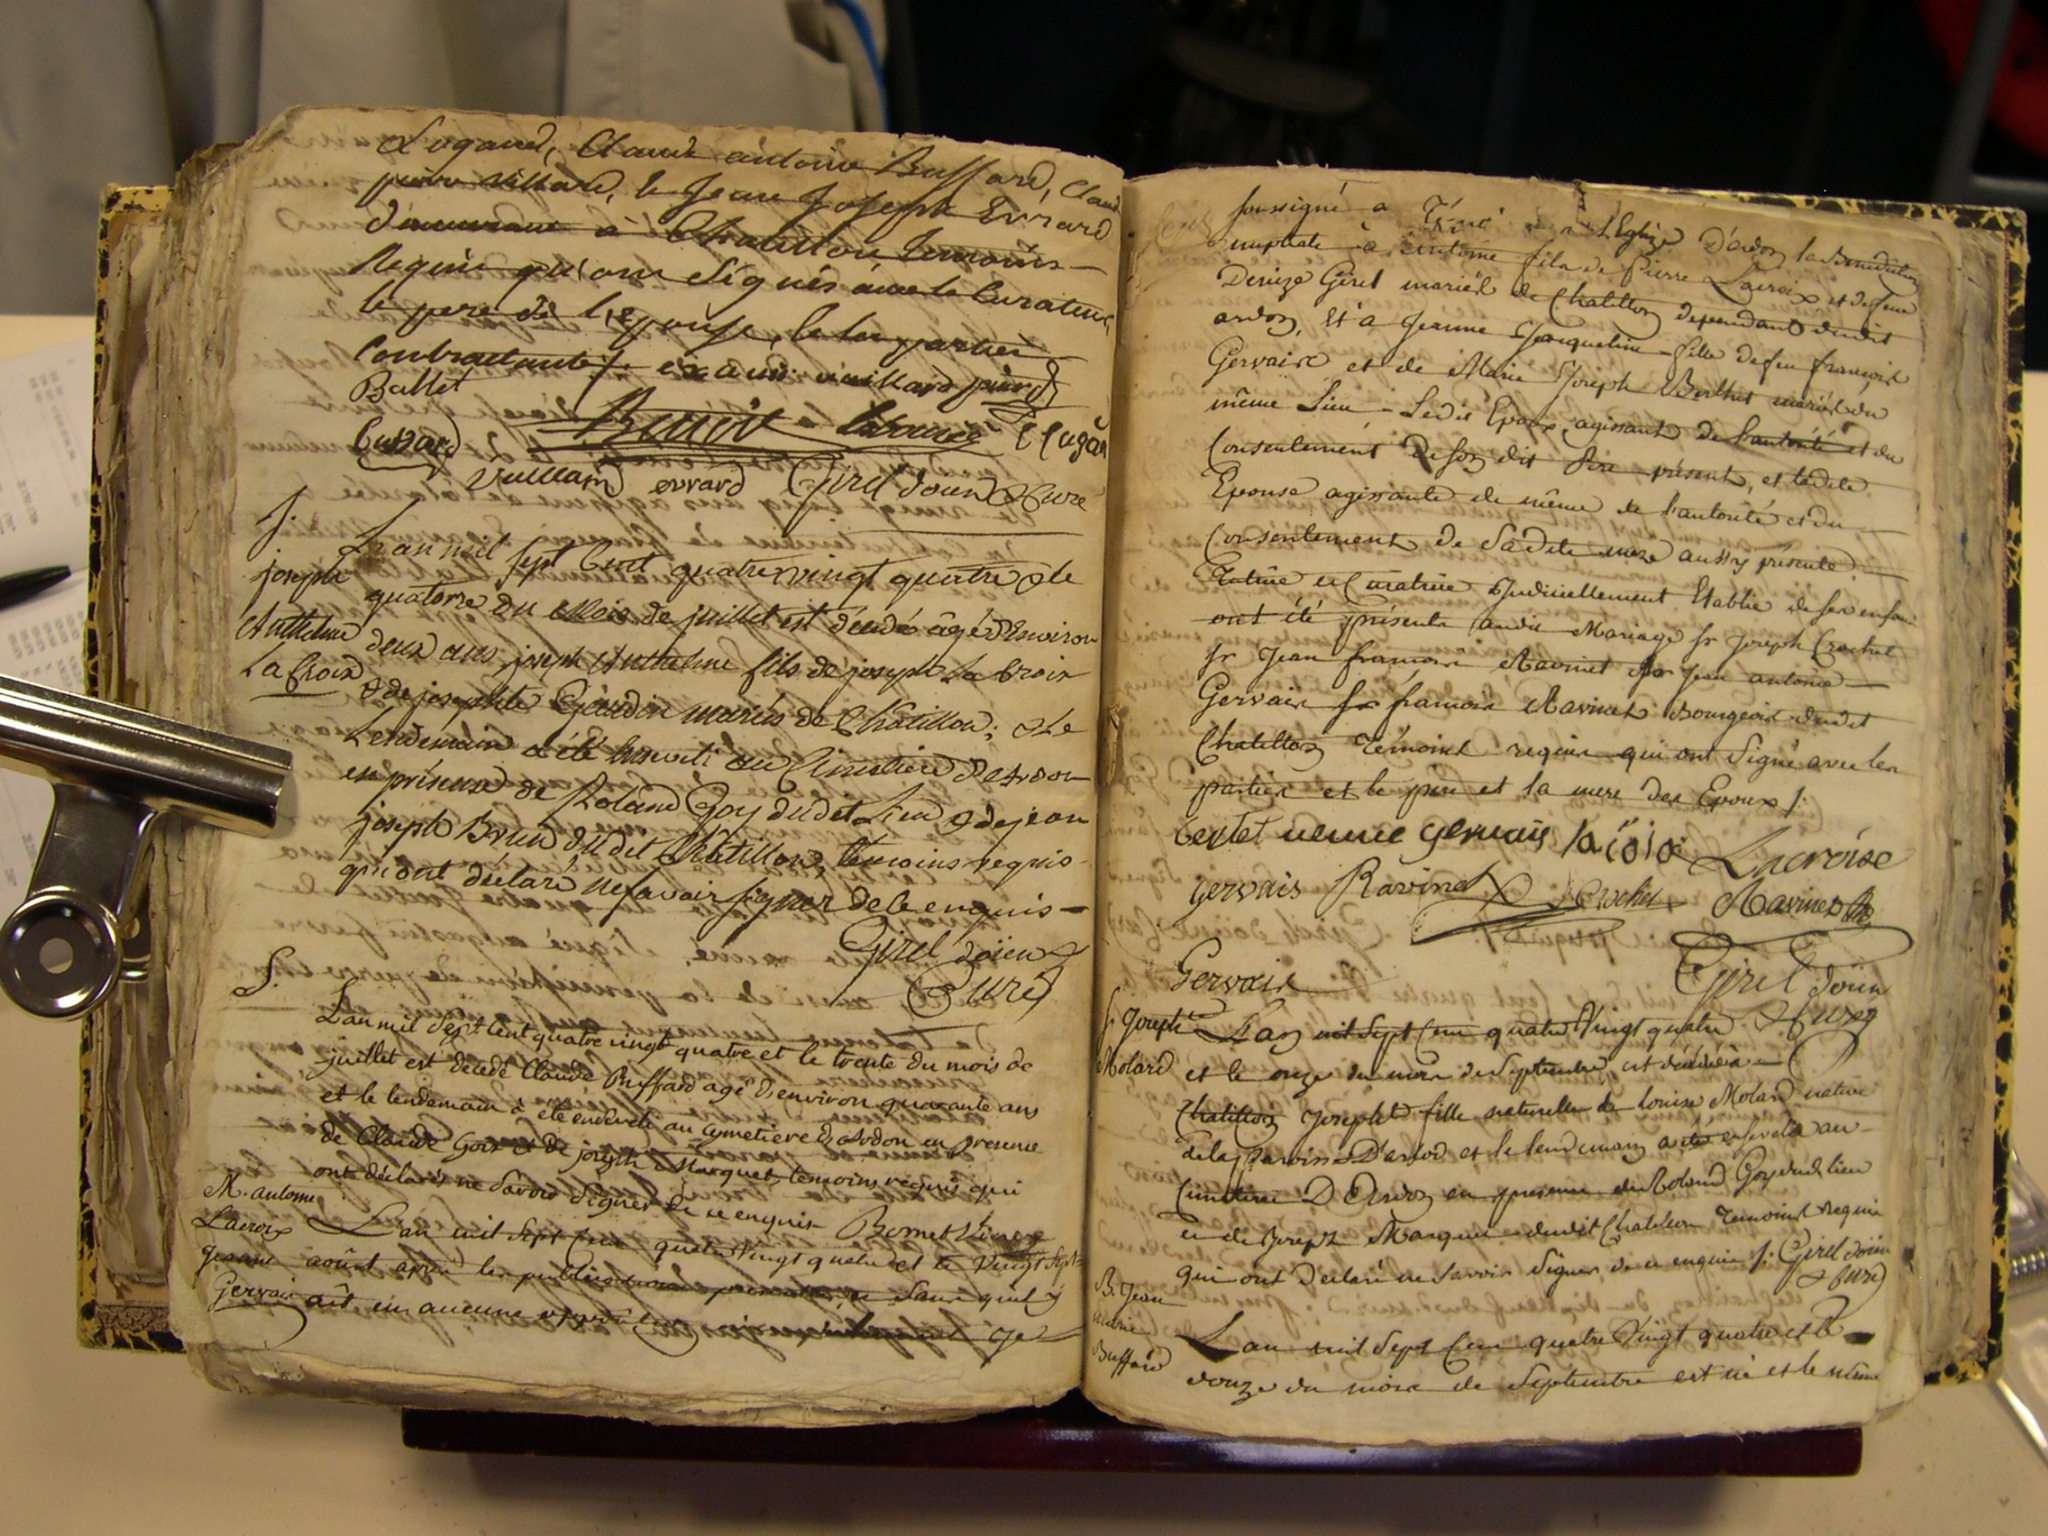 Logand, Claude antoine Buffard, Claud
pierre Villard, & Jean Joseph Evrard
demeurant à Chatillon temoins
Requis qui ont signés avec le Curateur,
le pere de l'Epouse, & les parties
Contractantes
Ballet
Benoit
Vuillard evrard Girel doien & Curé
S.
joseph
Anthelme
La Croix
L'an mil sept Cent quatre vingt quatre & le
quatorze du Mois de juillet est décédé âgé d'Environ
deux ans joseph Anthelme fils de joseph La Croix
& de josephte Goudin mariés de Châtillon; & le
Lendemain a été Enseveli au Cimetiere d'Ardon
en présence de Roland Goy dudet Lieu & de jean
joseph Brun dudet Châtillon, témoins requis
qui ont déclaré ne savoir signer de ce enquis
Girel doien &
Curé
S.
L'an mil sept cent quatre vingt quatre et le trente du mois de
juillet est decedé Claude Buffard agé d'environ quarante ans
et le lendemain à été enseveli au cymetiere d'Ardon en presence
de Claude Goix & de joseph Marquet, temoins requis qui
ont déclarés ne savoir signer de ce enquis Bornet Vicaire
M. antoine
Lacroix
jeanne
Gervais
L'an mil sept Cent quatre Vingt quatre et le Vingt sept
aoûst après les publications
ait eu aucune je
soussigné a l'Eglize D'ardon la Benediction
nuptiale à antoine fils de Pierre Lacroix et defeue
Denize Girel mariés de Chatillon dependant dudit
ardon, Et a Jeanne Jacqueline fille defeu françois
Gervais et de Marie Joseph Berthet mariés du
même Lieu - Ledit Epoux agissant de l'autorité et du
Consentement de son dit Pere présent, et ladete
Epouse agissante de même de l'autorité et du
Consentement de Sadete mere aussy présente
Tutrice et Curatrice Judiciellement Etablie de ses enfans
ont été présents audit Mariage sr Joseph Crochet
sr Jean francois Ravinet sr Jean antoine
Gervais sr francois Ravinet Bourgeois dudit
Chatillon Témoins requis qui ont signé avec les
parties et le pere et la mere des Epoux
bertet veuve gervais Lacroise
gervais Ravinet Crochet Ravinet
Gervais
Girel doien
& Curé
S. Josephte
Molard
L'an mil sept Cent quatre Vingt quatre
et le onze du mois de septembre, est décédée à
Chatillon Josephte fille naturelle de Louise Molard native
de la paroisse D'arlod et le lendemain a été ensevelie au
Cimetiere D'Ardon en presence de Roland Goy dudit lieu
et de Joseph Marquet dudit Chatillon Temoins requis
qui ont déclaré ne savoir signer de ce enquis Girel doien
& Curé
B. Jean
marie
Buffard
L'an mil sept Cent quatre Vingt quatre et le
douze du mois de septembre est né et le même